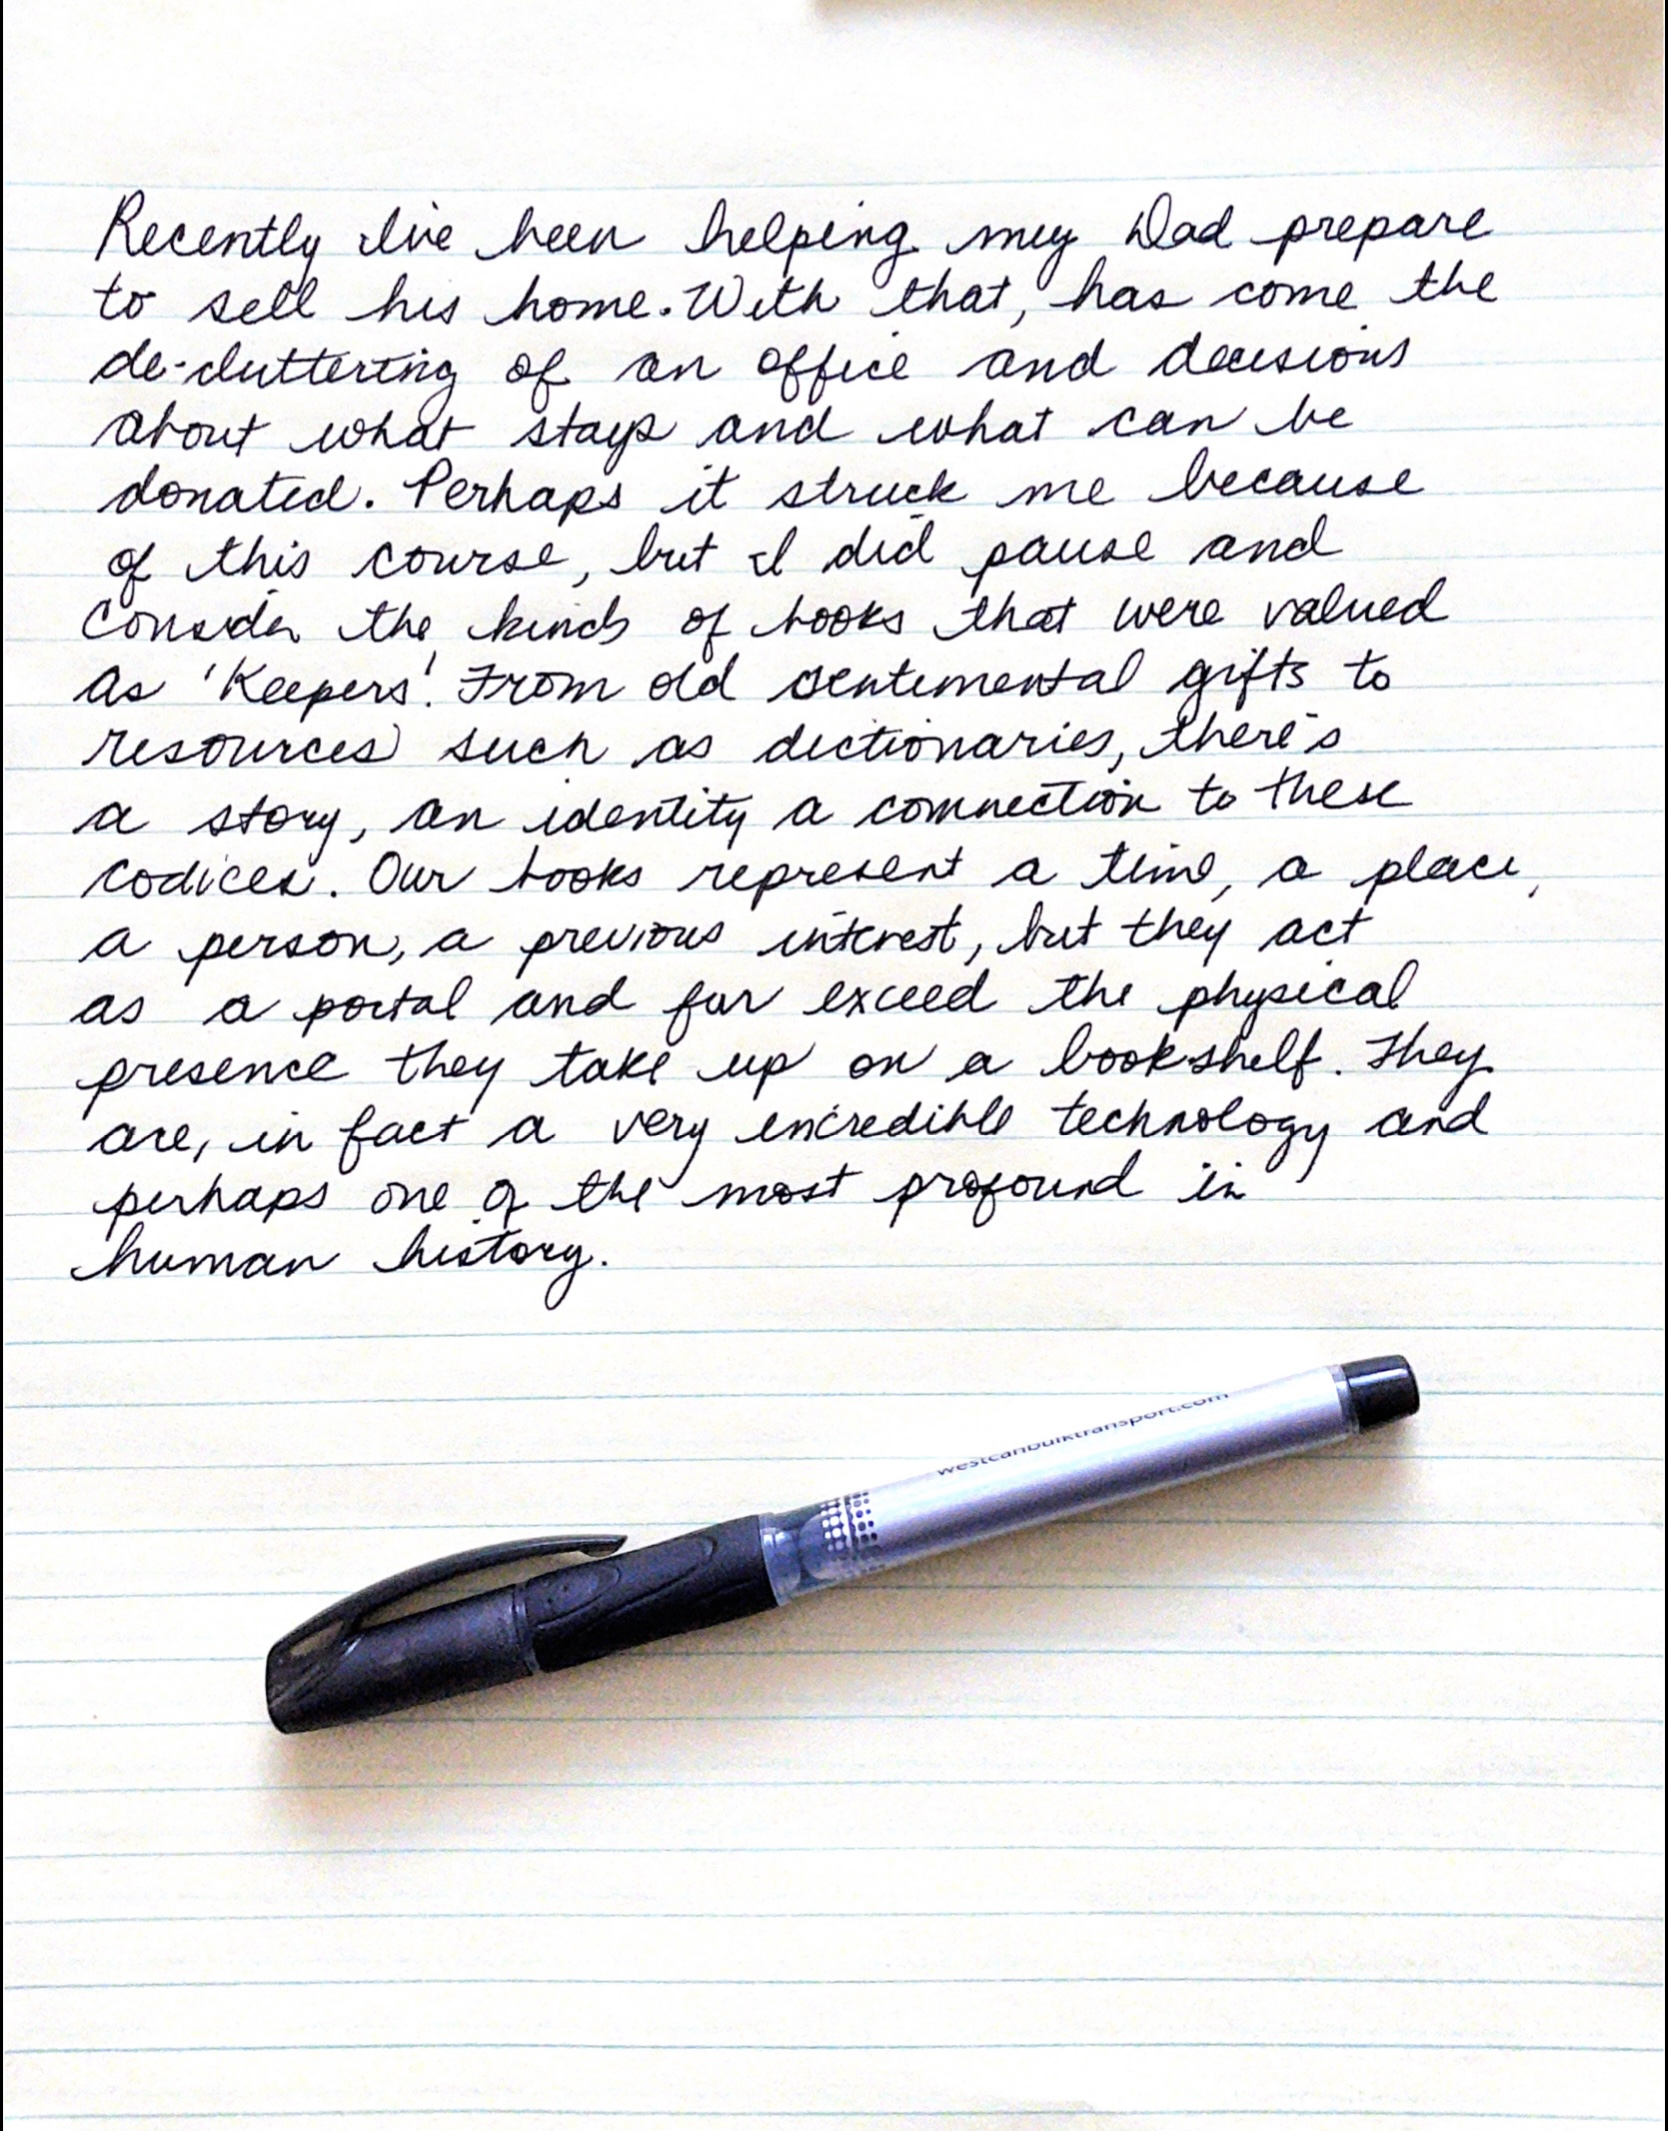 Recently I've been helping my Dad prepare
to sell his home. With that, has come the
de-cluttering of an office and decisions
about what stays and what can be
donated. Perhaps it struck me because
of this course, but I did pause and
consider the kinds of books that were valued
as 'Keepers'. From old sentimental gifts to
resources such as dictionaries, there's
a story, an identity a connection to these
codices. Our books represent a time, a place,
a person, a previous interest, but they act
as a portal and far exceed the physical
presence they take up on a bookshelf. They
are, in fact a very incredible technology and
perhaps one of the most profound in
human history.
westcanbulktransport.com